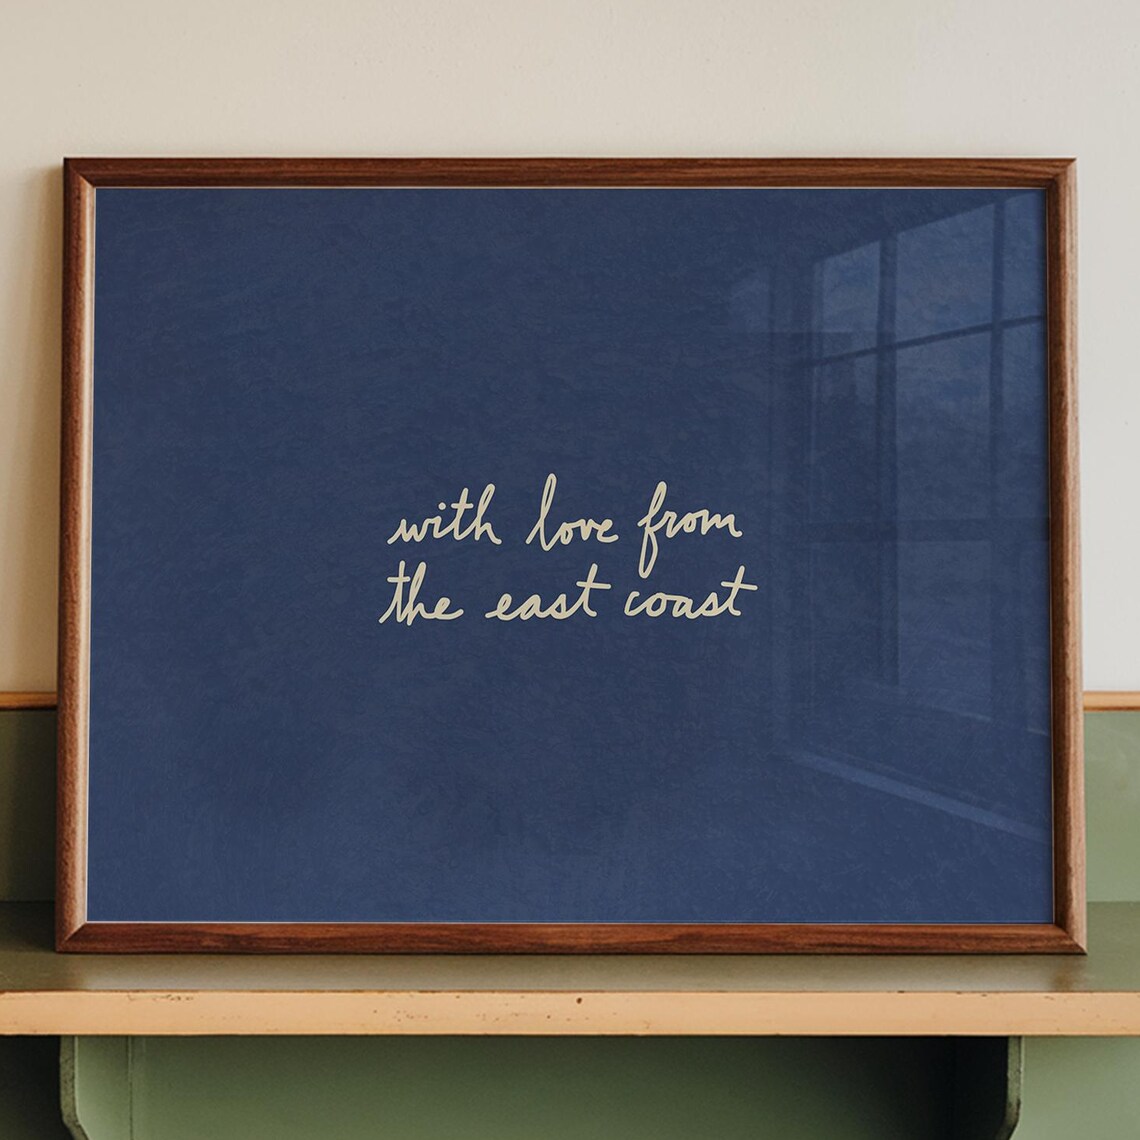 with love from
the east coast